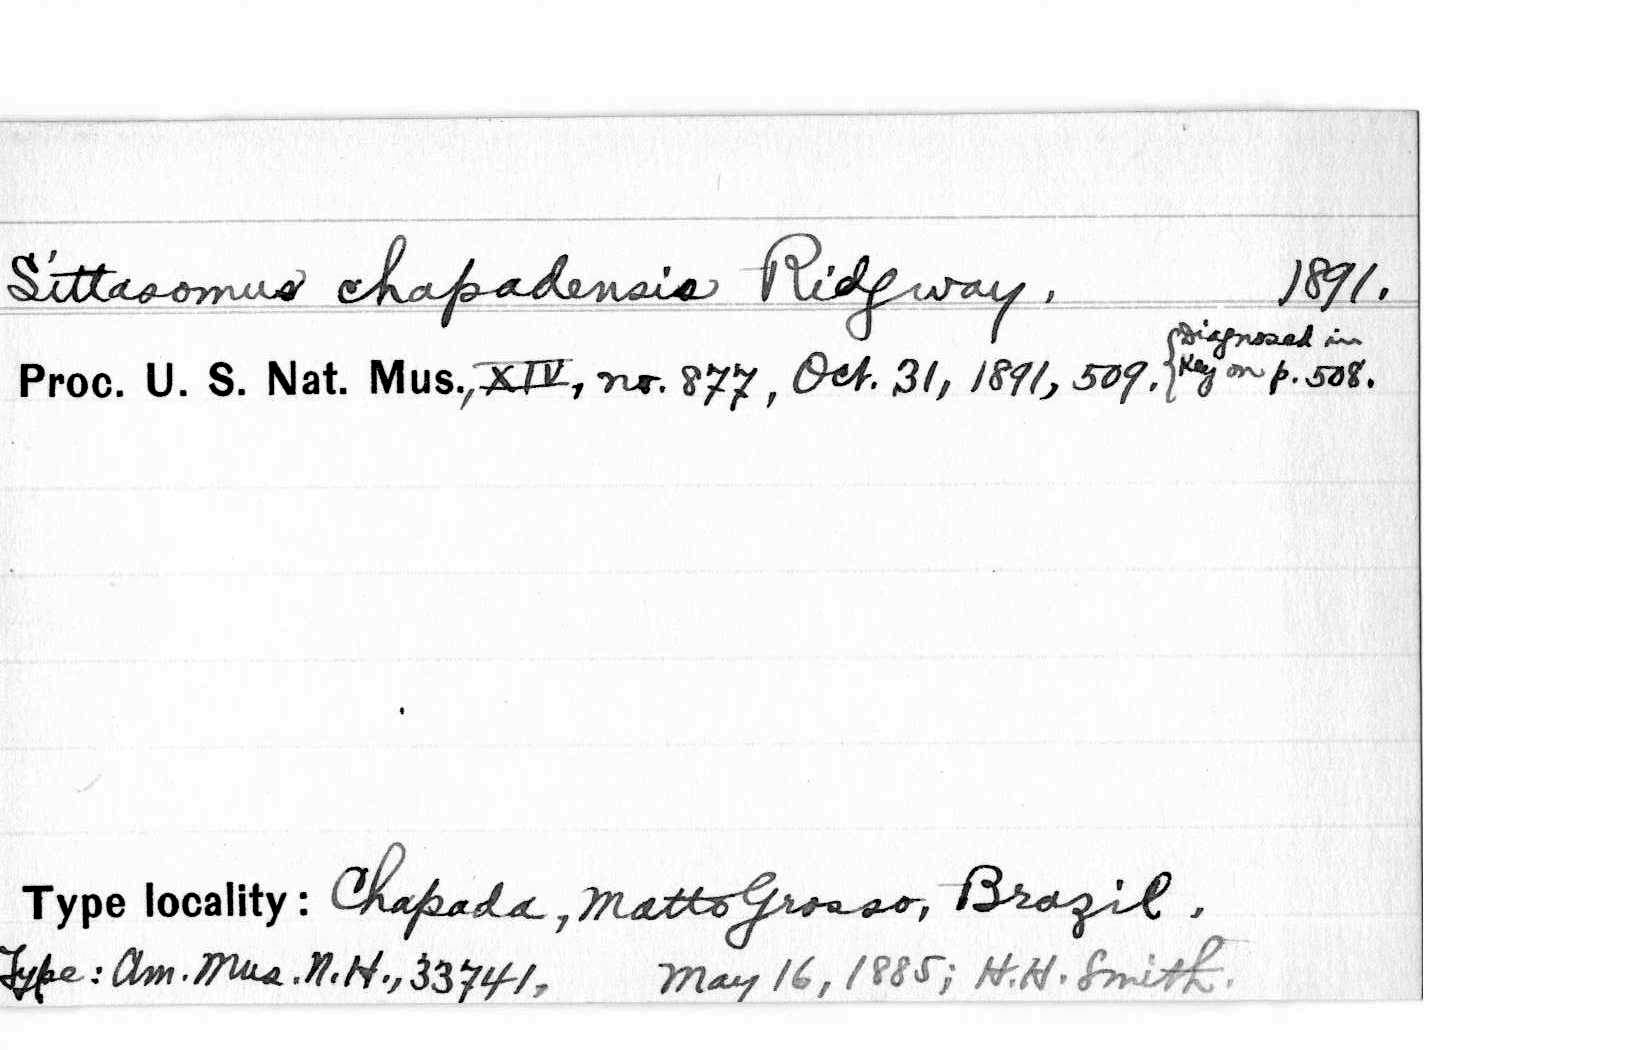 Sittasomus chapadensis Ridgway. 1891.
Proc. U. S. Nat. Mus., XIV, no. 877, Oct. 31, 1891, 509. {Diagnosed in
Key on p. 508.
Type locality: Chapada, Matto Grosso, Brazil.
Type: Am. Mus. N. H., 33741, May 16, 1885; H. H. Smith.